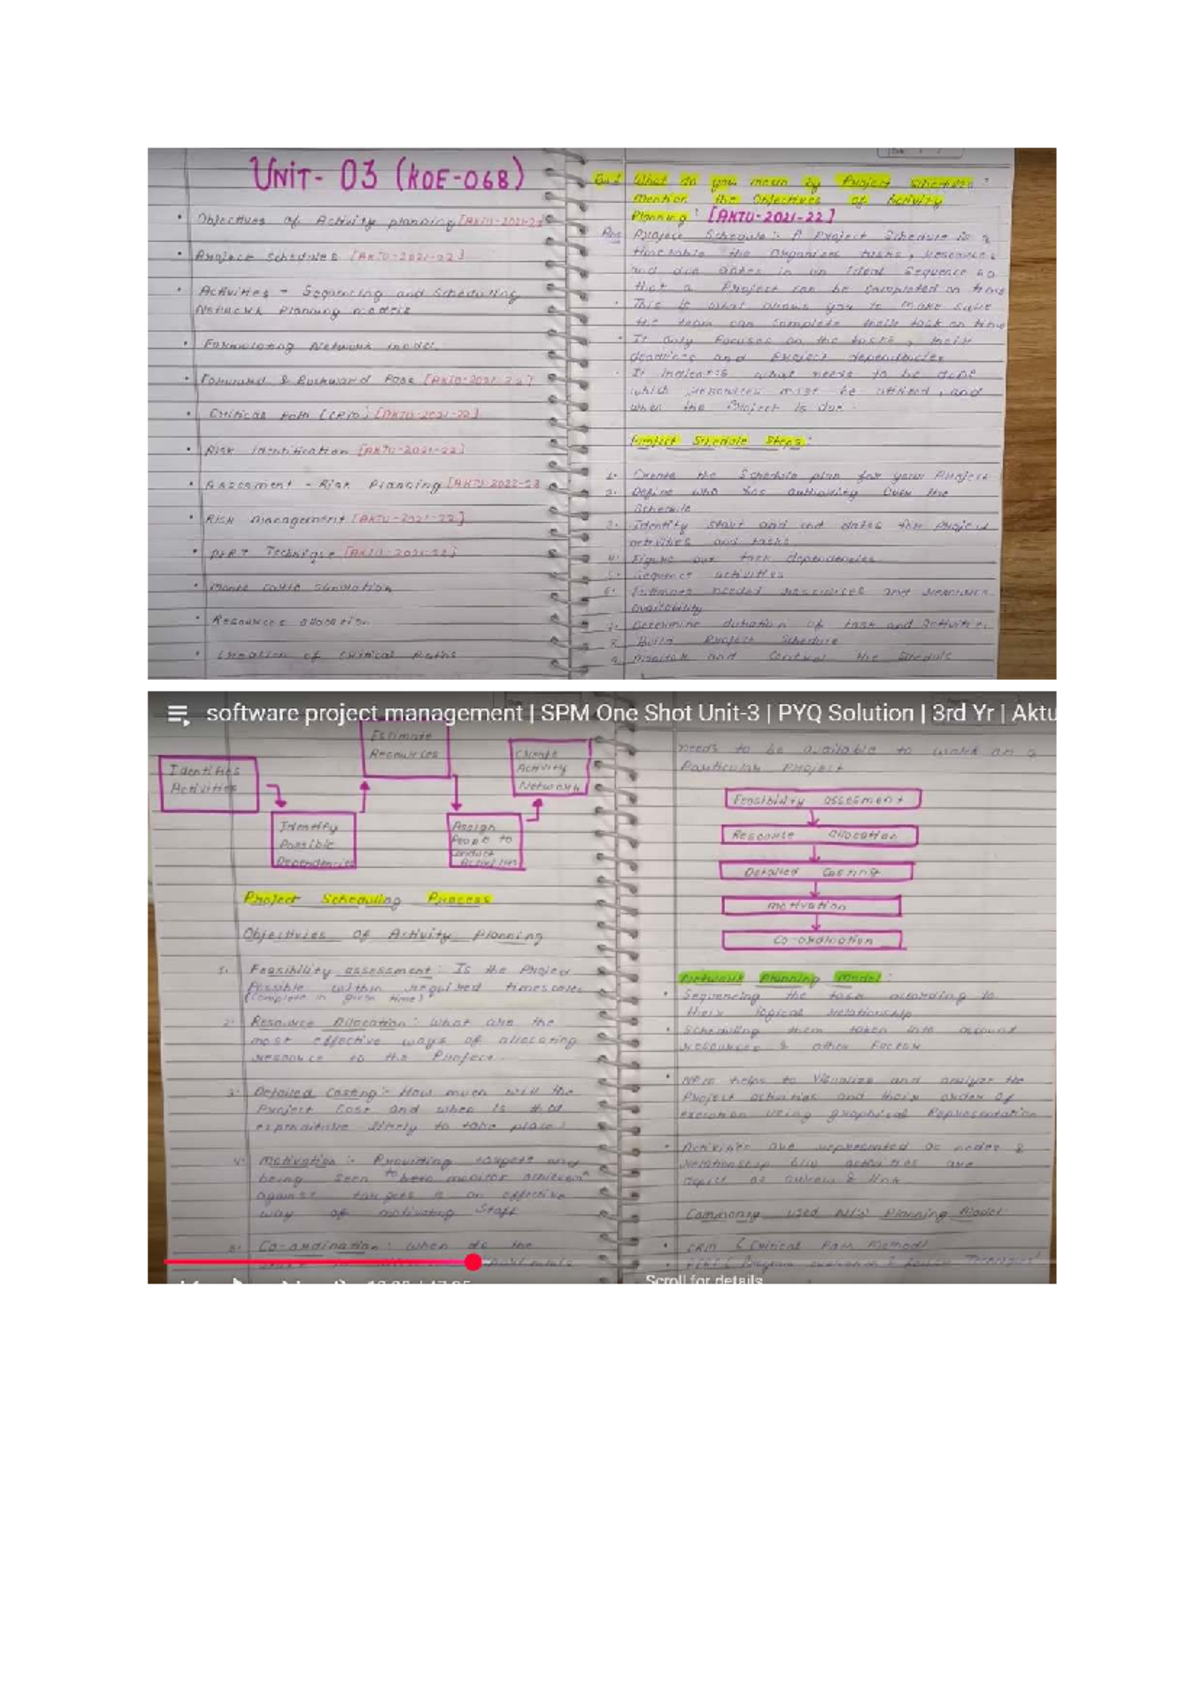 UNIT- 03 (KOE-068)
• Objectives of Activity planning [AKTU-2021-22
• Project Schedules [AKTU-2021-22]
• Activities - Sequencing and Scheduling
Network Planning models
• Formulating Network model.
• Forward & Backward Pass [AKTU-2021-22]
• Critical path (CPM) [AKTU-2021-22]
• Risk Identification [AKTU-2021-22]
• Assessment - Risk Planning [AKTU-2022-23
• Risk management [AKTU-2021-22]
• PERT Technique [AKTU-2021-22]
• Monte Carlo Simulation
• Resources allocation
• Creation of critical Paths
What do you mean by Project Schedules
Mention the Objectives of Activity
Planning? [AKTU-2021-22]
Ans Project Schedule:- A Project Schedule is a
timetable the organises tasks, resources
and due dates in an Ideal Sequence so
that a Project can be completed on time
• This is what allows you to make sure
the team can complete their task on time
• It only focuses on the tasks, their
deadlines and Project dependencies
• It indicates what needs to be done
which resources must be utilized, and
when the Project is due.
Project Schedule Steps:
1. Create the Schedule plan for your Project
2. Define who has authority over the
Schedule
3. Identify start and end dates the Project
activities and tasks
4. Figure out task dependencies
5. Sequence activities
6. Estimate needed resources and resource
availability
7. Determine duration of task and activities
8. Build Project Schedule
9. Monitor and Control the Schedule
software project management | SPM One Shot Unit-3 | PYQ Solution | 3rd Yr | Aktu
Identifies
Activities
Identify
Possible
Dependencies
Estimate
Resources
Assign
People to
conduct
Activities
Create
Activity
Network
Project Scheduling Process
Objectives Of Activity Planning
1. Feasibility assessment: Is the Project
Possible within required timescales
(complete in given time)
2. Resource Allocation: What are the
most effective ways of allocating
resource to the Project.
3. Detailed Costing:- How much will the
Project Cost and when is that
expenditure likely to take place?
4. Motivation:- Providing targets and
being seen to monitor
against targets is an effective
way of motivating Staff
5. Co-ordination: when do the
needs to be available to work on a
Particular Project
Feasibility assesment
Resource allocation
Detailed Costing
Motivation
Co-ordination
Network Planning Model:
• Sequencing the task according to
their logical relationship
• Scheduling them taken into account
resources & other Factors
• NPM helps to Visualize and analyze the
Project activities and their order of
execution using graphical Representation
• Activities are represented as nodes &
relationship b/w activities are
depict as arrows & link
Commonly used N/w Planning Model
• CPM (Critical Path Method)
Scroll for details